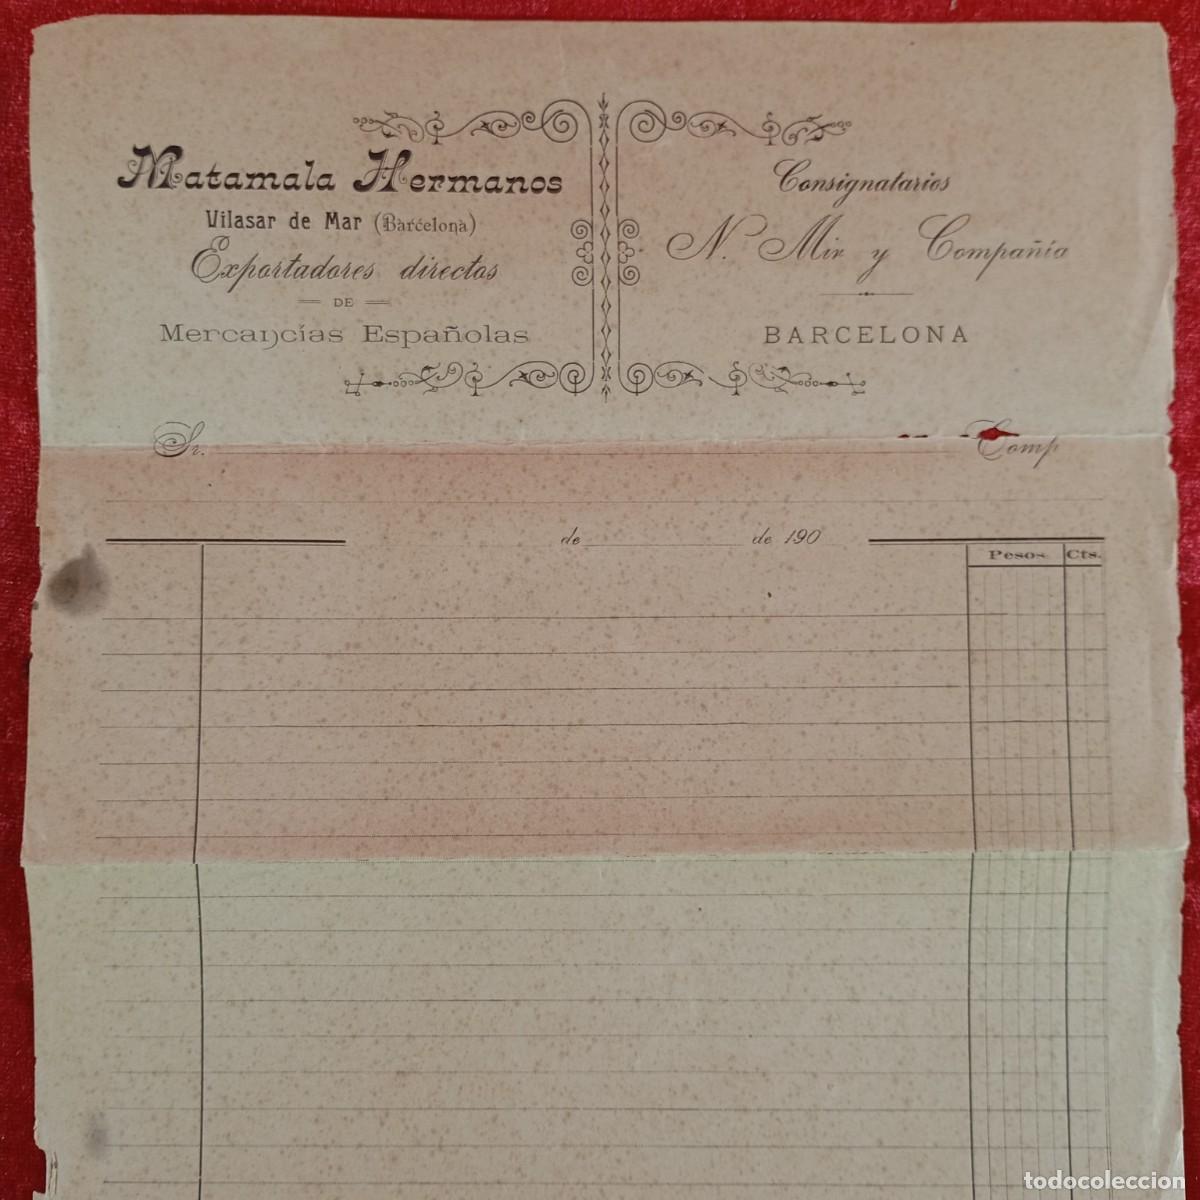 Matamala Hermanos
Vilasar de Mar (Barcelona)
Exportadores directos
DE
Mercancías Españolas
Consignatarios
N. Mir y Compañía
BARCELONA
Sr. Comp
de de 190
Pesos Cts.
todocoleccion